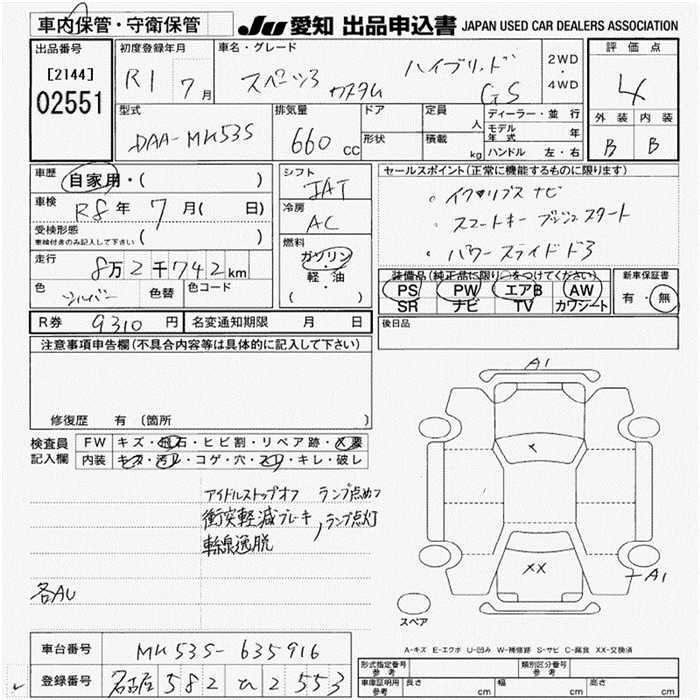 車内保管・守衛保管
JU 愛知 出品申込書 JAPAN USED CAR DEALERS ASSOCIATION
出品番号
[2144]
02551
初度登録年月
R1 7月
車名・グレード
スペーシア カスタム ハイブリッド GS
2WD
・
4WD
評価点
4
外装 内装
B B
型式
DAA-MK53S
排気量
660 cc
ドア
形状
定員 人
積載 kg
ディーラー・並行
モデル年式 年
ハンドル 左・右
車歴 自家用・( )
車検 R8年 7月( 日)
受検形態
車検付きのみ記入して下さい ( )
走行 8万2千742km
色 シルバー 色替 色コード
シフト
IAT
冷房
AC
燃料
ガソリン
・
軽・油
( )
セールスポイント(正常に機能するものに限ります)
・ ナビ
・ スマートキー プッシュスタート
・ パワースライドドア
装備品(純正品に限り○をつけてください)
PS PW エアB AW
SR ナビ TV カワシート
新車保証書
有・無
R券 9310円 名変通知期限 月 日
後日品
注意事項申告欄(不具合内容等は具体的に記入して下さい)
修復歴 有 (箇所 )
検査員
記入欄
FW キズ・飛石・ヒビ割・リペア跡・X要
内装 キズ・汚れ・コゲ・穴・スレ・キレ・破レ
アイドルストップオフ ランプ点めつ
衝突軽減ブレーキ,ランプ点灯
車線逸脱
各AU
A1
X
XX
A1
スペア
A-キズ E-エクボ U-凹み W-補修跡 S-サビ C-腐食 XX-交換済
車台番号 MK53S-635916
登録番号 名古屋 582 2553
形式指定番号 参考
類別区分番号 参考
車庫証明用 参考 長さ cm 幅 cm 高さ cm